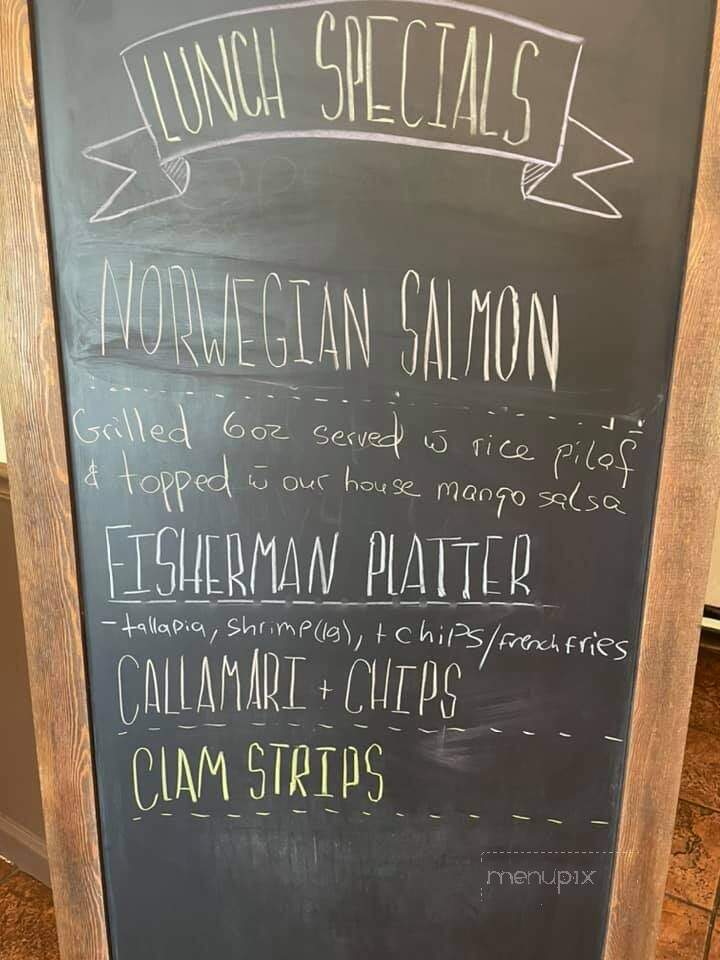 LUNCH SPECIALS
NORWEGIAN SALMON
Grilled 6oz served w̄ rice pilaf
& topped w̄ our house mango salsa
FISHERMAN PLATTER
- tallapia, shrimp(lg), + chips/french fries
CALLAMARI + CHIPS
CLAM STRIPS
menupix